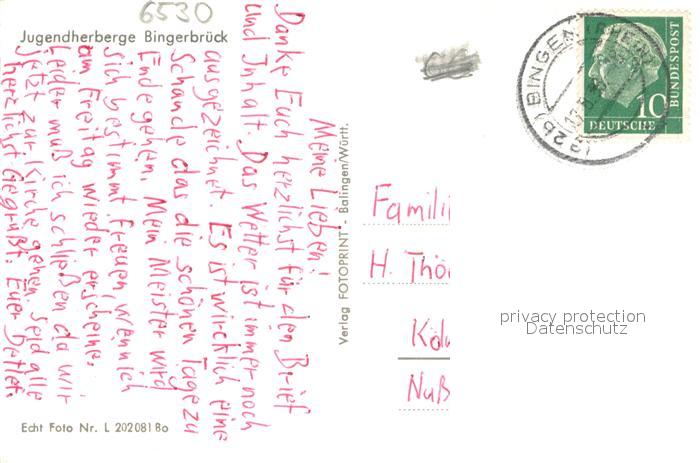 6530
Jugendherberge Bingerbrück
Meine Lieben!
Danke Euch herzlichst für den Brief
und Inhalt. Das Wetter ist immer noch
ausgezeichnet. Es ist wircklich eine
Schande das die schönen Tage zu
Ende gehen. Mein Meister wird
sich bestimmt freuen, wenn ich
am Freitag wieder erscheine.
Leider muß ich schließen da wir
jetzt zur Kirche gehen. Seid alle
herzlichst Gegrüßt. Euer Detlef.
Echt Foto Nr. L 202081 Bo
Verlag FOTOPRINT - Balingen/Württ.
(22b) BINGEN (RHEIN)
10
DEUTSCHE
BUNDESPOST
Famili
H. Thö
Köl
Nuß
privacy protection
Datenschutz